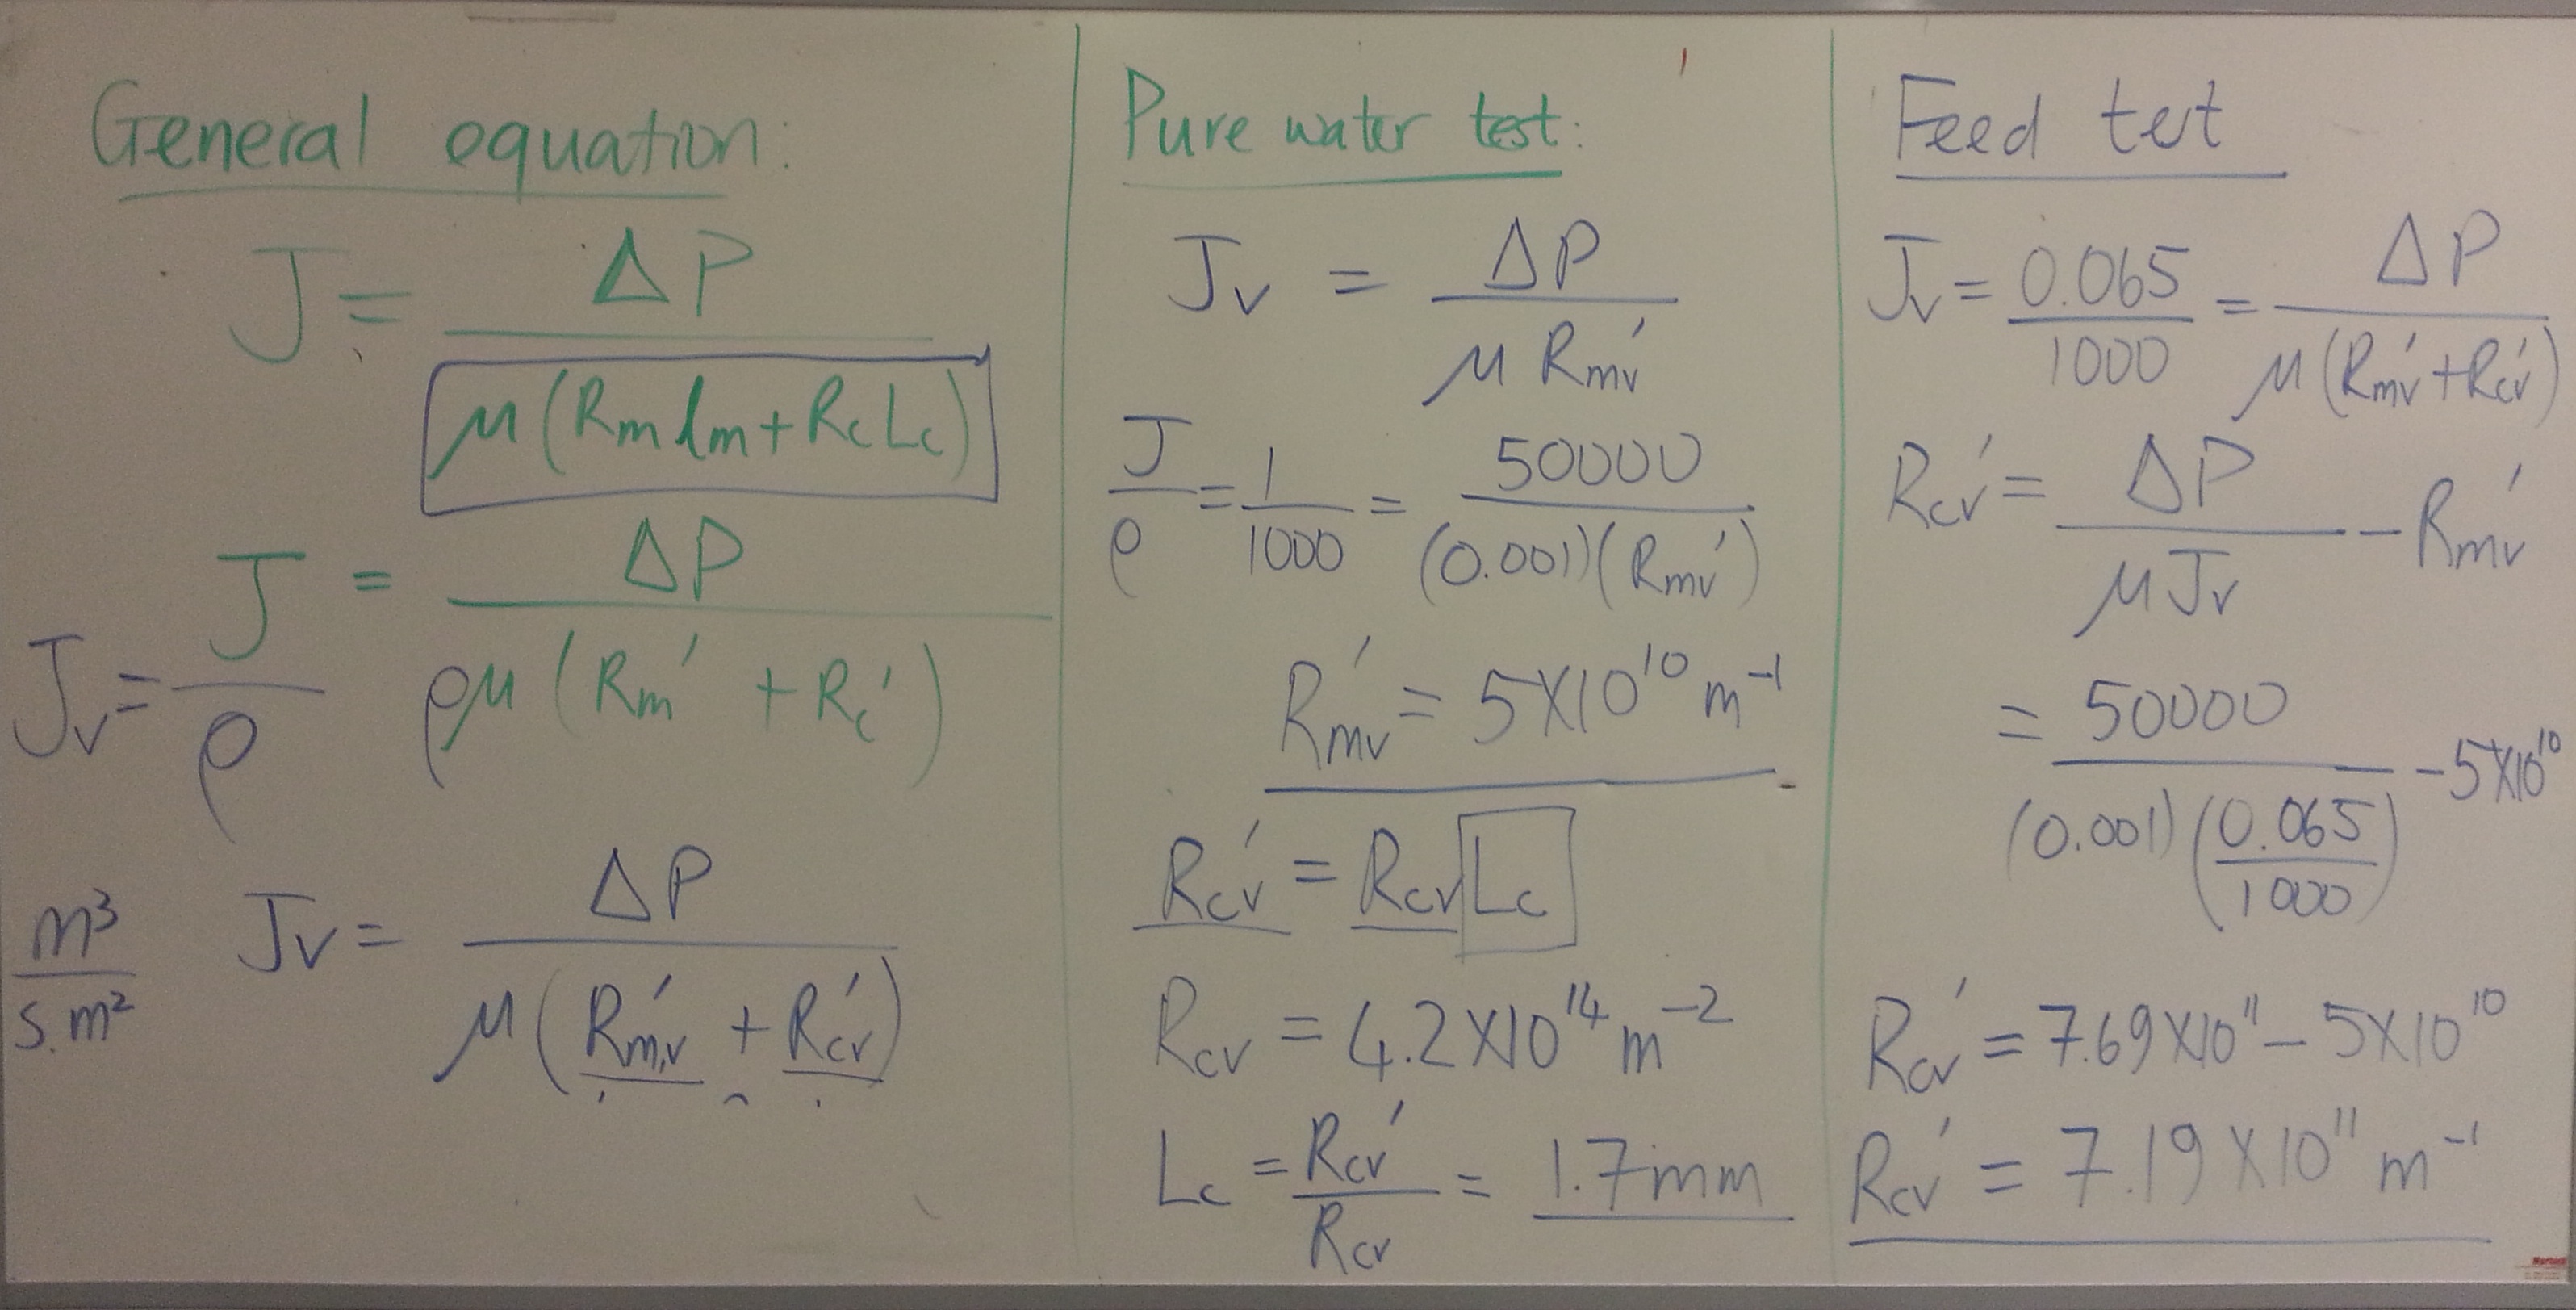 General equation:
J = ΔP / μ(Rm lm + Rc Lc)
Jv = J/ρ = ΔP / ρμ(Rm' + Rc')
m³/s.m² Jv = ΔP / μ(Rm,v' + Rcv')
Pure water test:
Jv = ΔP / μ Rmv'
J/ρ = 1/1000 = 50000 / (0.001)(Rmv')
Rmv' = 5×10¹⁰ m⁻¹
Rcv' = Rcv Lc
Rcv = 4.2×10¹⁴ m⁻²
Lc = Rcv'/Rcv = 1.7mm
Feed test
Jv = 0.065/1000 = ΔP / μ(Rmv' + Rcv')
Rcv' = ΔP / μJv − Rmv'
= 50000 / (0.001)(0.065/1000) − 5×10¹⁰
Rcv' = 7.69×10¹¹ − 5×10¹⁰
Rcv' = 7.19×10¹¹ m⁻¹